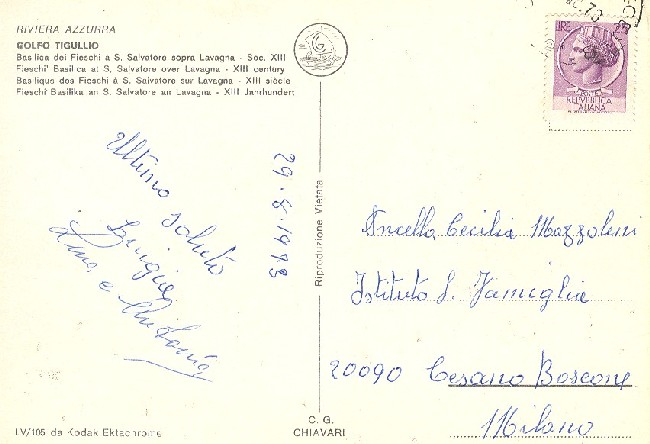 RIVIERA AZZURRA
GOLFO TIGULLIO
Basilica dei Fieschi a S. Salvatore sopra Lavagna - Sec. XIII
Fieschi' Basilica at S. Salvatore over Lavagna - XIII century
Basilique des Fieschi à S. Salvatore sur Lavagna - XIII siècle
Fieschi Basilika an S. Salvatore an Lavagna - XIII Jahrhundert
Ultimo saluto
Luigina
Lina e
29.8.1973
Riproduzione Vietata
73
LIRE
REPVBBLICA
ITALIANA
Ancella Cecilia Mazzoleni
Istituto S. Famiglia
20090 Cesano Boscone
Milano
LV/105 da Kodak Ektachrome
C. G.
CHIAVARI